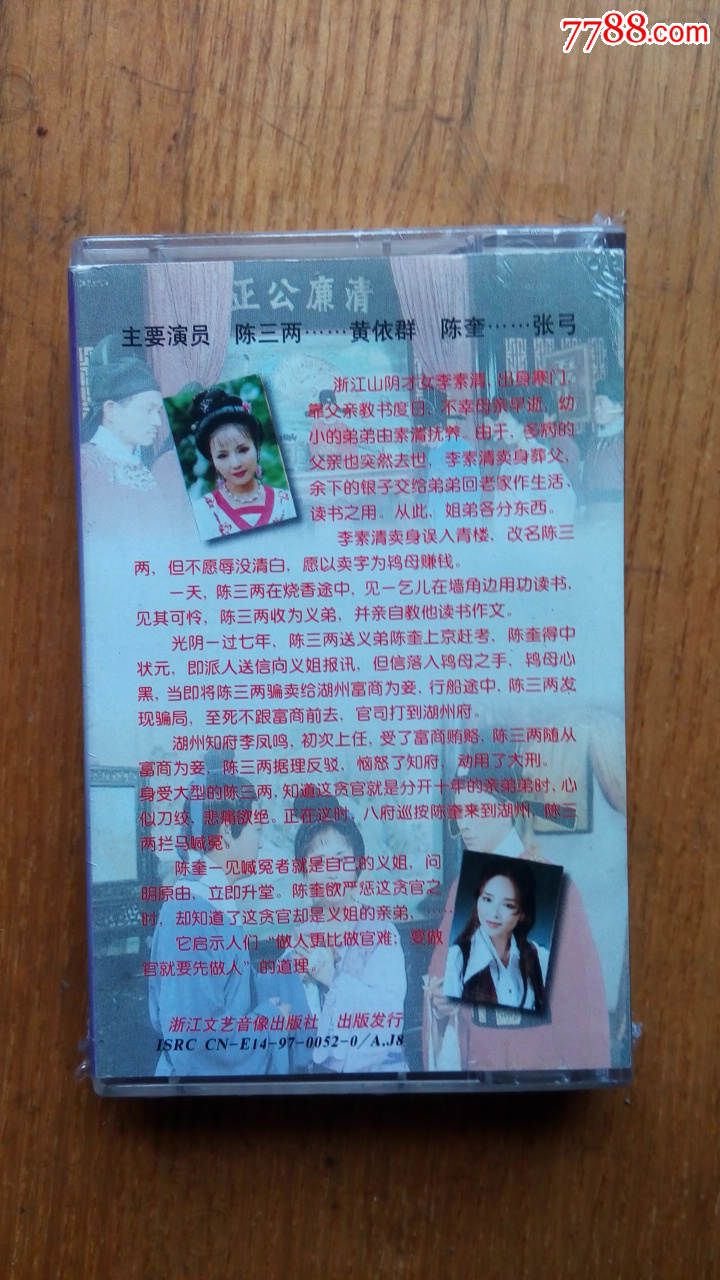 7788.com
正公廉清
主要演员 陈三两……黄依群 陈奎……张弓
浙江山阴才女李素清,出身寒门,
靠父亲教书度日,不幸母亲早逝,幼
小的弟弟由素清抚养。由于,多病的
父亲也突然去世,李素清卖身葬父,
余下的银子交给弟弟回老家作生活、
读书之用。从此,姐弟各分东西。
李素清卖身误入青楼、改名陈三
两,但不愿辱没清白,愿以卖字为鸨母赚钱。
一天,陈三两在烧香途中,见一乞儿在墙角边用功读书,
见其可怜,陈三两收为义弟,并亲自教他读书作文。
光阴一过七年,陈三两送义弟陈奎上京赶考,陈奎得中
状元,即派人送信向义姐报讯,但信落入鸨母之手,鸨母心
黑,当即将陈三两骗卖给湖州富商为妾,行船途中,陈三两发
现骗局,至死不跟富商前去,官司打到湖州府。
湖州知府李凤鸣,初次上任,受了富商贿赂,陈三两随从
富商为妾,陈三两据理反驳,恼怒了知府,动用了大刑。
身受大型的陈三两,知道这贪官就是分开十年的亲弟弟时,心
似刀绞、悲痛欲绝。正在这时,八府巡按陈奎来到湖州,陈三
两拦马喊冤。
陈奎一见喊冤者就是自己的义姐,问
明原由,立即升堂。陈奎欲严惩这贪官之
时,却知道了这贪官却是义姐的亲弟,……
它启示人们“做人更比做官难;要做
官就要先做人”的道理。
浙江文艺音像出版社 出版发行
ISRC CN-E14-97-0052-0/A.J8